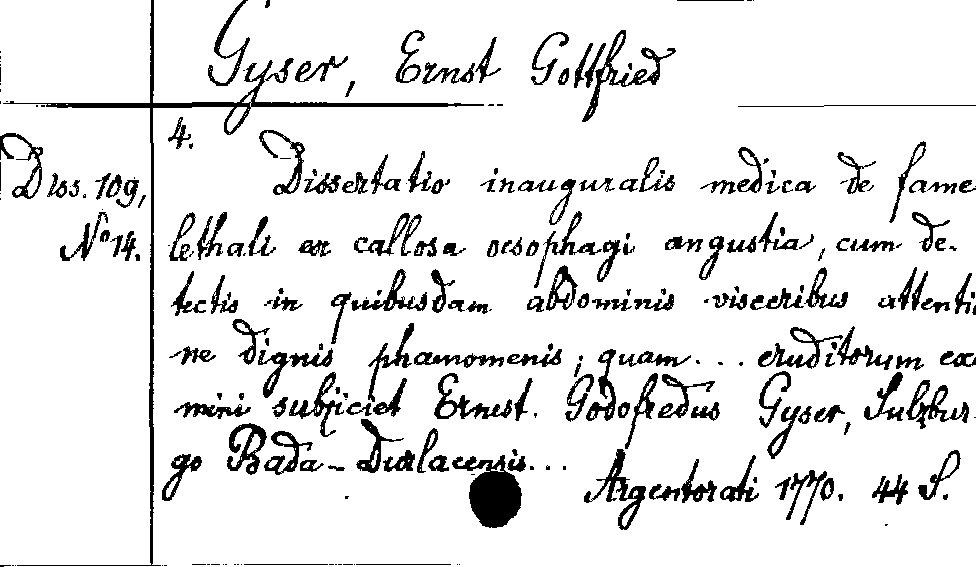 Gyser, Ernst Gottfried
4.
Diss. 109,
N° 14.
Dissertatio inauguralis medica de fame
lethali ex callosa oesophagi angustia, cum de-
tectis in quibusdam abdominis visceribus attentio
ne dignis phænomenis; quam... eruditorum exa
mini subjiciet Ernest. Godofredus Gyser, Sulzbur-
go Bada-Durlacensis...
Argentorati 1770. 44 S.